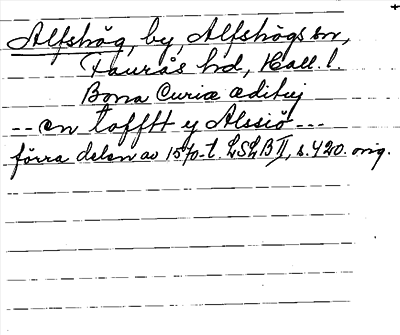 Alfshög, by, Alfshögs sn,
Faurås hd, Hall. l.
Bona Curiæ ædituj
-- en tofftt y Alssiö ---
förra delen av 1570-t. LSLB II, s. 420. orig.